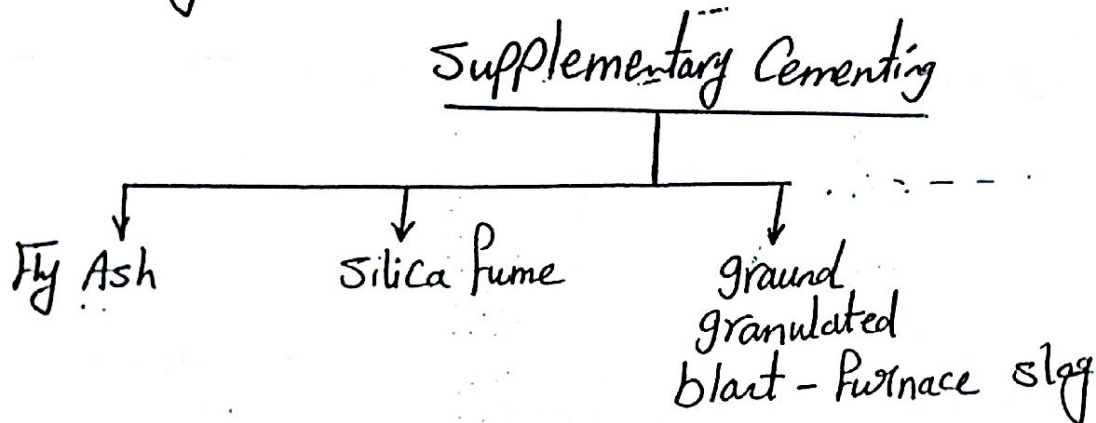 Supplementary Cementing
Fly Ash
Silica fume
graund
granulated
blast-furnace slag